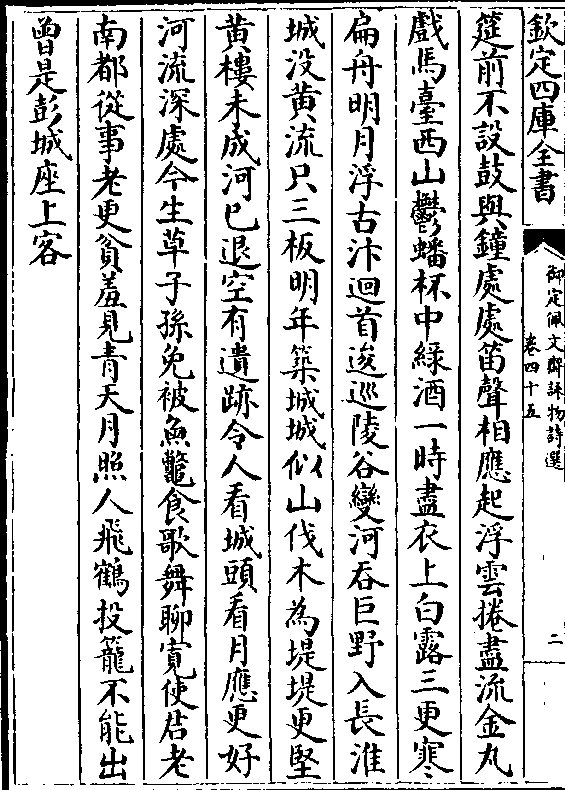 欽定四庫全書
御定佩文齋詠物詩選
卷四十五
二
筵前不設鼓與鐘處處笛聲相應起浮雲捲盡流金丸
戲馬臺西山鬱蟠杯中緑酒一時盡衣上白露三更寒
扁舟明月浮古汴迴首逡巡陵谷變河吞巨野入長淮
城没黄流只三板明年築城城似山伐木為堤堤更堅
黄樓未成河已退空有遺跡令人看城頭看月應更好
河流深處今生草子孫免被魚鼈食歌舞聊寛使君老
南都從事老更貧羞見青天月照人飛鶴投籠不能出
曽是彭城座上客